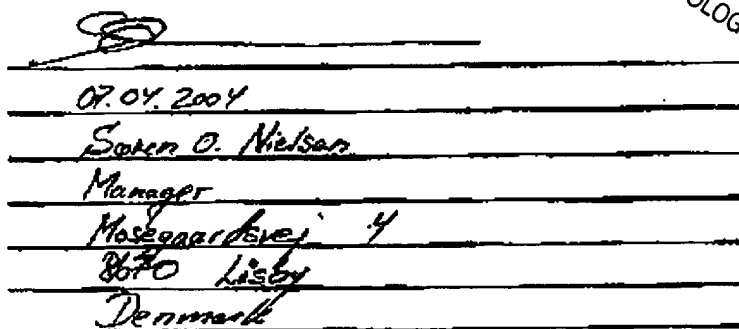 OLOG
07.04.2004
Søren O. Nielsen
Manager
Mosegaardsvej 4
8670 Låsby
Denmark